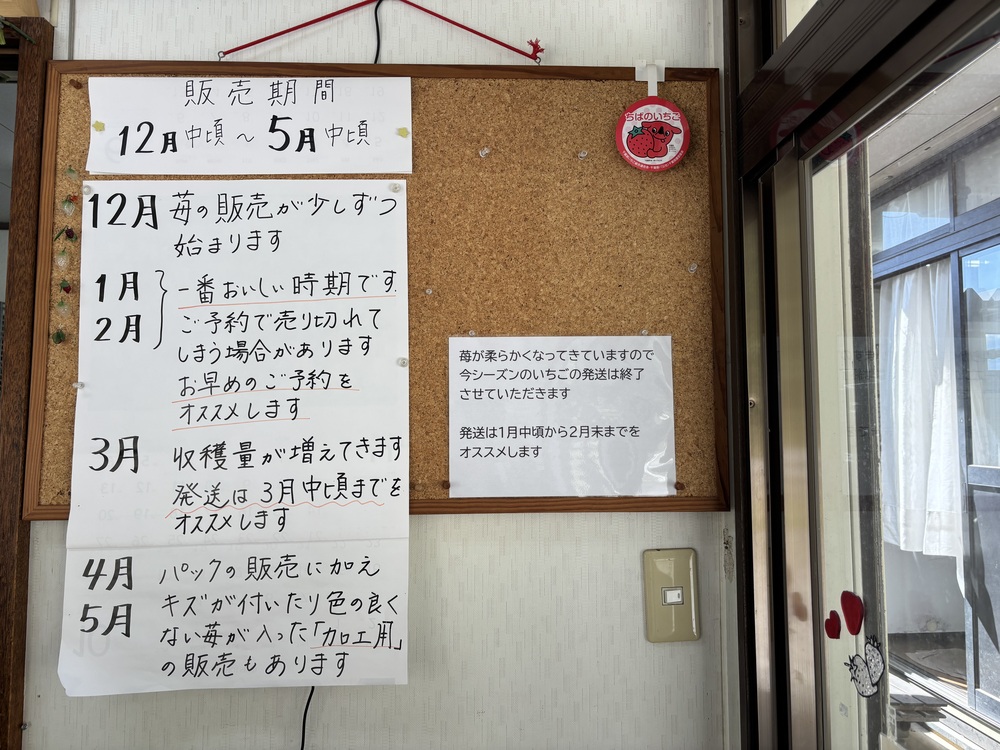 販売期間
12月中頃~5月中頃
12月 苺の販売が少しずつ
始まります
1月 一番おいしい時期です
2月 ご予約で売り切れて
しまう場合があります
お早めのご予約を
オススメします
3月 収穫量が増えてきます
発送は3月中頃までを
オススメします
4月 パックの販売に加え
5月 キズが付いたり色の良く
ない苺が入った「加工用」
の販売もあります
ちばのいちご
苺が柔らかくなってきていますので
今シーズンのいちごの発送は終了
させていただきます
発送は1月中頃から2月末までを
オススメします